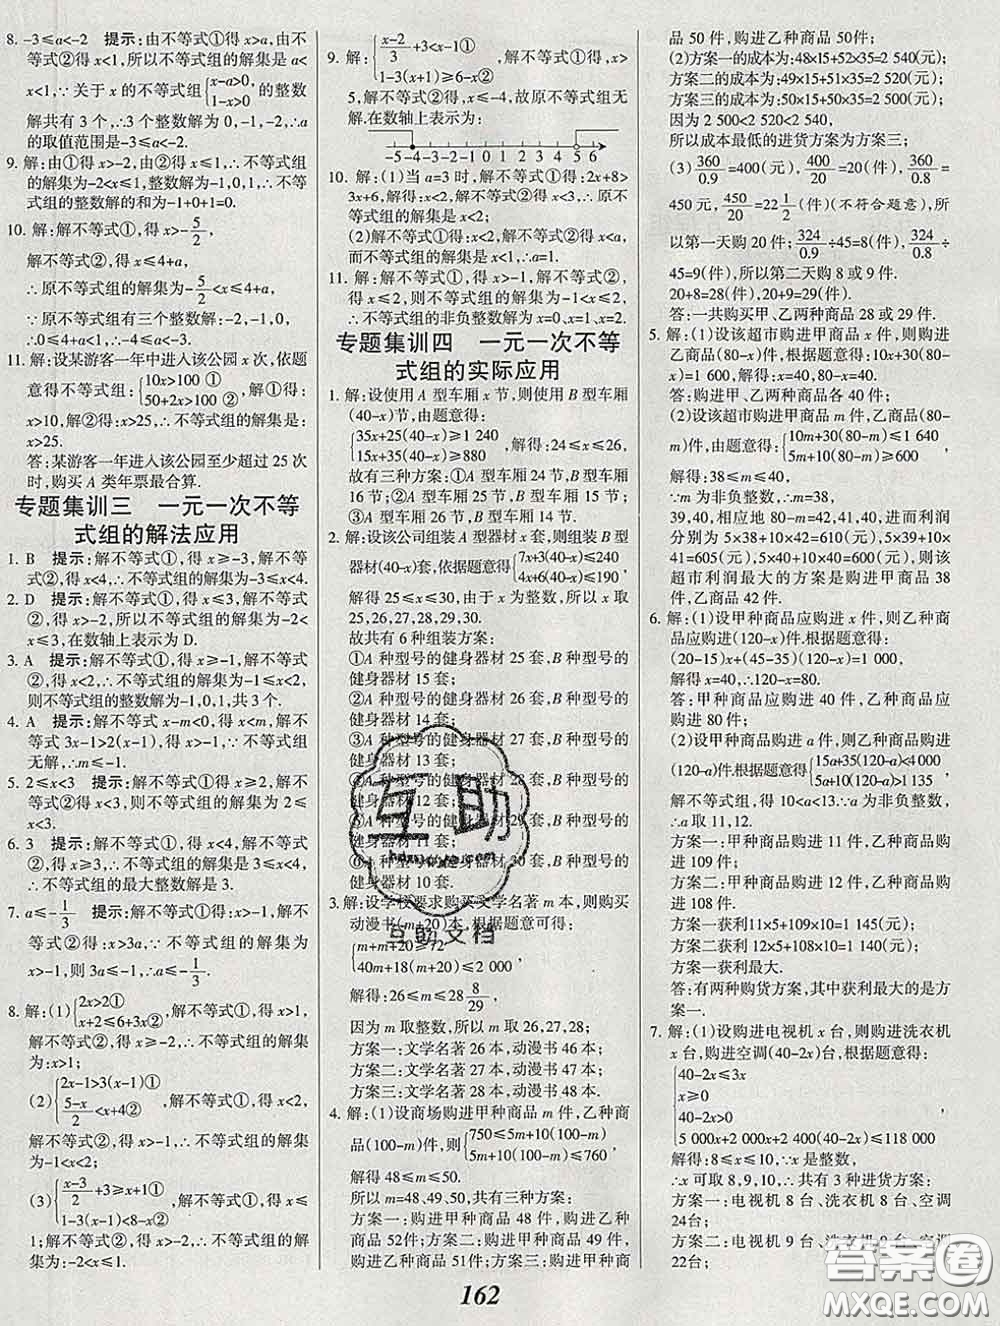 8. -3≤a<-2　提示:由不等式①得 x>a,由不
等式②得 x<1,所以不等式组的解集是 a<
x<1,∵关于 x 的不等式组{x-a>0 1-x>0 的整数
解共有 3 个,∴3 个整数解为 0,-1,-2,∴a
的取值范围是-3≤a<-2.
9. 解:由①得 x>-2,由②得 x≤1,∴不等式组
的解集为-2<x≤1,整数解为-1,0,1,∴不等
式组的整数解的和为-1+0+1=0.
10. 解:解不等式①,得 x>-5/2,
解不等式②,得 x≤4+a,
∴原不等式组的解集为-5/2<x≤4+a,
∵原不等式组有三个整数解:-2,-1,0,
∴0≤4+a<1,∴-4≤a<-3.
11. 解:设某游客一年中进入该公园 x 次,依题
意得不等式组:{10x>100 ① 50+2x>100 ②,解①得:
x>10,解②得:x>25,∴不等式组的解集是:
x>25.
答:某游客一年进入该公园至少超过 25 次
时,购买 A 类年票最合算.
专题集训三　一元一次不等
式组的解法应用
1. B　提示:解不等式①,得 x≥-3,解不等
式②,得 x<4,∴不等式组的解集为-3≤x<4.
2. D　提示:解不等式①,得 x≤3,解不等式
②,得 x>-2,所以原不等式组的解集为-2<
x≤3,在数轴上表示为 D.
3. A　提示:解不等式①,得 x≥-1,解不等式
②,得 x<2,∴不等式组的解集为-1≤x<2,
则不等式组的整数解为-1,0,1,共 3 个.
4. A　提示:解不等式 x-m<0,得 x<m,解不
等式 3x-1>2(x-1),得 x>-1,∵不等式组
无解,∴m≤-1.
5. 2≤x<3　提示:解不等式①得 x≥2,解不等
式②得 x<3,则不等式组的解集为 2≤
x<3.
6. 3　提示:解不等式①,得 x<4,解不等式
②,得 x≥-3,∴不等式组的解集为-3≤x<4,
∴不等式组的最大整数解是 3.
7. a≤-1/3　提示:解不等式①得:x>-1,解不
等式②得:x>3a,∵不等式组的解集为
x>-1,则 3a≤-1,∴a≤-1/3.
8. 解:(1){2x>2① x+2≤6+3x②,解不等式①得:x>1,
解不等式②得:x≥-2,∴不等式组的解集
为:x>1;
(2){2x-1>3(x-1)① (5-x)/2<x+4②,解不等式①,得 x<2,
解不等式②,得 x>-1,∴不等式组的解集
为-1<x<2;
(3){(x-3)/2+3≥x+1① 1-3(x-1)<8-x②,解不等式①,得 x≤
1;解不等式②,得 x>-2,∴不等式组的解
集为:-2<x≤1.
9. 解:{(x-2)/3+3<x-1① 1-3(x+1)≥6-x②,解不等式①,得 x>
5,解不等式②,得 x≤-4,故原不等式组无
解.在数轴上表示为:
-5 -4 -3 -2 -1 0 1 2 3 4 5 6
10. 解:(1)当 a=3 时,解不等式①得:2x+8>
3x+6,解得:x<2,解不等式②得 x<3,∴原不
等式组的解集是 x<2;
(2)解不等式①得:x<2,解不等式②得 x<a,
而不等式组的解集是 x<1,∴a=1.
11. 解:解不等式①,得 x>-1,解不等式②,
得 x≤2,则不等式组的解集为-1<x≤2,
∴不等式组的非负整数解为 x=0,x=1,x=2.
专题集训四　一元一次不等
式组的实际应用
1. 解:设使用 A 型车厢 x 节,则使用 B 型车厢
(40-x)节,由题意得:
{35x+25(40-x)≥1 240 15x+35(40-x)≥880,解得:24≤x≤26,
故有三种方案:①A 型车厢 24 节,B 型车厢
16 节;②A 型车厢 25 节,B 型车厢 15 节;
③A 型车厢 26 节,B 型车厢 14 节.
2. 解:设该公司组装 A 型器材 x 套,则组装 B 型
器材(40-x)套,依据题意得:{7x+3(40-x)≤240 4x+6(40-x)≤190,
解得 25≤x≤30,由于 x 为整数,所以 x 取
25,26,27,28,29,30.
故共有 6 种组装方案:
①A 种型号的健身器材 25 套,B 种型号的
健身器材 15 套;
②A 种型号的健身器材 26 套,B 种型号的
健身器材 14 套;
③A 种型号的健身器材 27 套,B 种型号的
健身器材 13 套;
④A 种型号的健身器材 28 套,B 种型号的
健身器材 12 套;
⑤A 种型号的健身器材 29 套,B 种型号的
健身器材 11 套;
⑥A 种型号的健身器材 30 套,B 种型号的
健身器材 10 套.
3. 解:设学校要求购买文学名著 m 本,则购买
动漫书(m+20)本,根据题意可得:
{m+m+20≥72 40m+18(m+20)≤2 000,
解得:26≤m≤28 8/29,
因为 m 取整数,所以 m 取 26,27,28;
方案一:文学名著 26 本,动漫书 46 本;
方案二:文学名著 27 本,动漫书 47 本;
方案三:文学名著 28 本,动漫书 48 本.
4. 解:(1)设商场购进甲种商品 m 件,乙种商
品(100-m)件,则{750≤5m+10(100-m) 5m+10(100-m)≤760,
解得 48≤m≤50.
所以 m=48、49、50,共有三种方案:
方案一:购进甲种商品 48 件,购进乙种
商品 52件;方案二:购进甲种商品 49 件,
购进乙种商品 51 件;方案三:购进甲种商
品 50 件,购进乙种商品 50件;
(2)方案一的成本为:48×15+52×35=2 540(元)
方案二的成本为:49×15+51×35=2 520(元)
方案三的成本为:50×15+50×35=2 500(元)
因为 2 500<2 520<2 540,
所以成本最低的进货方案为方案三;
(3)360/0.9=400(元),400/20=20(件),360/0.8=
450 元,450/20=22 1/2(件)(不符合题意),所
以第一天购 20 件;324/0.9÷45=8(件),324/0.8÷
45=9(件),所以第二天购 8 或 9 件.
20+8=28(件),20+9=29(件).
答:一共购买甲、乙两种商品 28 或 29 件.
5. 解:(1)设该超市购进甲商品 x 件,则购进
乙商品(80-x)件,根据题意得:10x+30(80-
x)=1 600,解得:x=40,80-x=40,
答:购进甲、乙两种商品各 40 件;
(2)设该超市购进甲商品 m 件,乙商品(80-
m)件,由题意得:{10m+30(80-m)≤1 640 5m+10(80-m)≥600,
解得:38≤m≤40,
∵m 为非负整数,∴m=38,
39,40,相应地 80-m=42,41,40,进而利润
分别为 5×38+10×42=610(元),5×39+10×
41=605(元),5×40+10×40=600(元),则该
超市利润最大的方案是购进甲商品 38
件,乙商品 42 件.
6. 解:(1)设甲种商品应购进 x 件,则乙种商
品应购进(120-x)件,根据题意得:
(20-15)x+(45-35)(120-x)=1 000,
解得:x=40,∴120-x=80.
答:甲种商品应购进 40 件,乙种商品应购
进 80 件;
(2)设甲种商品购进 a 件,则乙种商品购进
(120-a)件.根据题意得{15a+35(120-a)<4 000 5a+10(120-a)>1 135,
解不等式组,得 10<a<13∴a 为非负整数,
∴a 取 11,12.
方案一:甲种商品购进 11 件,乙种商品购
进 109 件;
方案二:甲种商品购进 12 件,乙种商品购
进 108 件.
方案一获利11×5+109×10=1 145(元)
方案二获利 12×5+108×10=1 140(元)
方案一获利最大.
答:有两种购货方案,其中获利最大的是方
案一.
7. 解:(1)设购进电视机 x 台,则购进洗衣机
x 台,购进空调(40-2x)台,根据题意得:
{40-2x≤3x x≥0 40-2x>0 5 000x+2 000x+2 400(40-2x)≤118 000
解得:8≤x≤10,∵x 是整数,
∴x 可取 8,9,10,∴共有 3 种进货方案:
方案一:电视机 8 台、洗衣机 8 台、空调
24台;
方案二:电视机 9 台、洗衣机 9 台、空调
22台;
互助
互助文档
162
答案圈
MXQE.COM